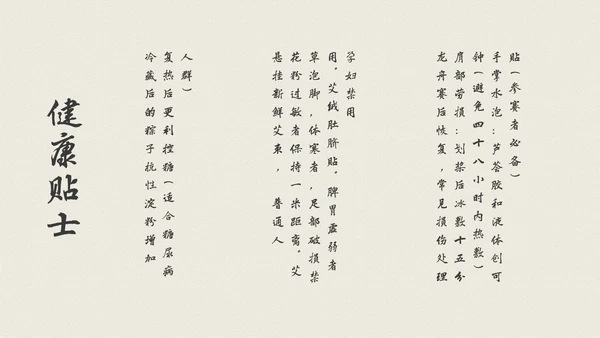 健康贴士
冷藏后的粽子抗性淀粉增加
复热后更利控糖(适合糖尿病
人群)
悬挂新鲜艾束,普通人
花粉过敏者保持一米距离。艾
草泡脚,体寒者,足部破损禁
用。艾绒肚脐贴。脾胃虚弱者
孕妇禁用
龙舟赛后恢复,常见损伤处理
肩部劳损:划桨后冰敷十五分
钟(避免四十八小时内热敷)
手掌水泡:芦荟胶和液体创可
贴(参赛者必备)